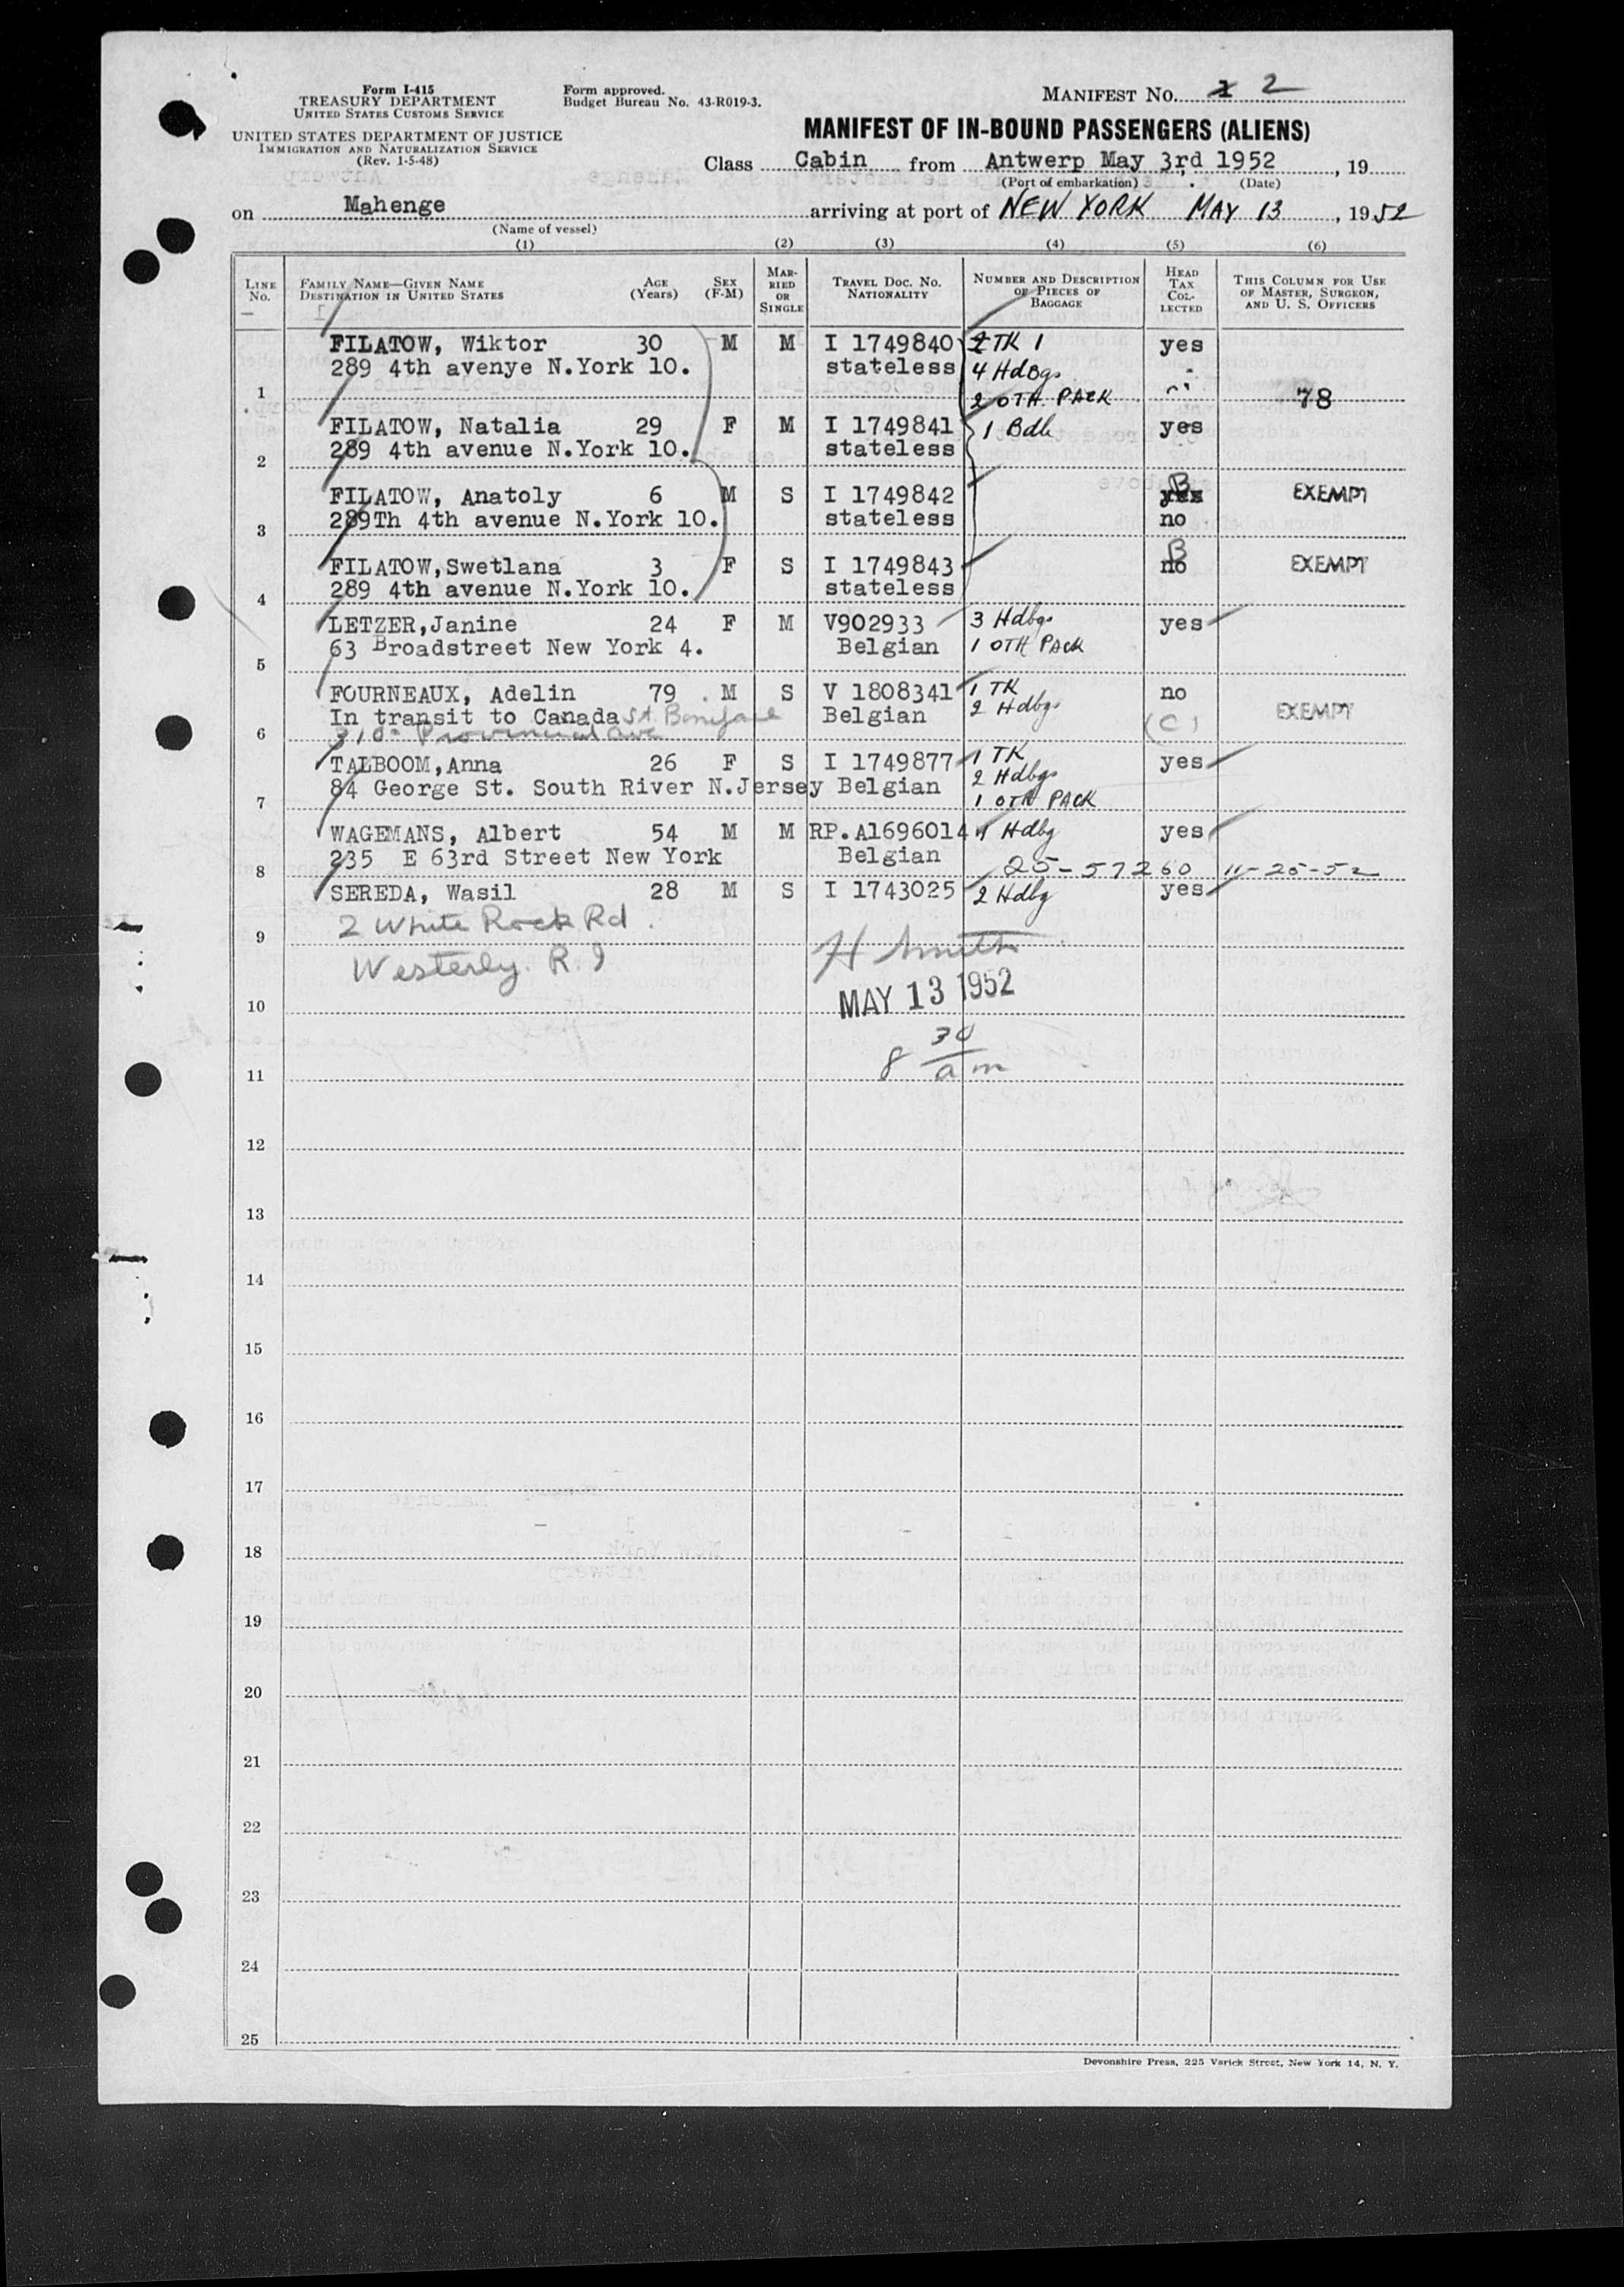 Form I-415
TREASURY DEPARTMENT
UNITED STATES CUSTOMS SERVICE
UNITED STATES DEPARTMENT OF JUSTICE
IMMIGRATION AND NATURALIZATION SERVICE
(Rev. 1-5-48)
Form approved.
Budget Bureau No. 43-R019-3.
MANIFEST NO. 1 2
MANIFEST OF IN-BOUND PASSENGERS (ALIENS)
Class Cabin from Antwerp May 3rd 1952, 19
(Port of embarkation) (Date)
on Mahenge arriving at port of NEW YORK MAY 13, 1952
(Name of vessel)
(1) (2) (3) (4) (5) (6)
LINE No. FAMILY NAME—GIVEN NAME DESTINATION IN UNITED STATES AGE (Years) SEX (F-M) MARRIED OR SINGLE TRAVEL DOC. NO. NATIONALITY NUMBER AND DESCRIPTION OF PIECES OF BAGGAGE HEAD TAX COLLECTED THIS COLUMN FOR USE OF MASTER, SURGEON, AND U. S. OFFICERS
FILATOW, Wiktor 30 M M I 1749840 2 TK 1 yes
289 4th avenye N.York 10. stateless 4 HdBgs
1 2 OTH. PACK 78
FILATOW, Natalia 29 F M I 1749841 1 Bdl yes
2 289 4th avenue N.York 10. stateless
FILATOW, Anatoly 6 M S I 1749842 yes B EXEMPT
3 289Th 4th avenue N.York 10. stateless no
FILATOW,Swetlana 3 F S I 1749843 B no EXEMPT
4 289 4th avenue N.York 10. stateless
LETZER,Janine 24 F M V902933 3 Hdbgs yes
5 63 Broadstreet New York 4. Belgian 1 OTH PACK
FOURNEAUX, Adelin 79 M S V 1808341 1 TK no
In transit to Canada St. Boniface Belgian 2 Hdbgs (C) EXEMPT
6 310 Provincial ave
TALBOOM,Anna 26 F S I 1749877 1 TK yes
84 George St. South River N.Jersey Belgian 2 Hdbgs
7 1 OTH PACK
WAGEMANS, Albert 54 M M RP.A1696014 1 Hdbg yes
8 235 E 63rd Street New York Belgian 25-57260 11-25-52
SEREDA, Wasil 28 M S I 1743025 2 Hdbg yes
9 2 White Rock Rd.
Westerly. R.I H Smith
10 MAY 13 1952
11 8 30 am
12
13
14
15
16
17
18
19
20
21
22
23
24
25
Devonshire Press, 225 Varick Street, New York 14, N. Y.